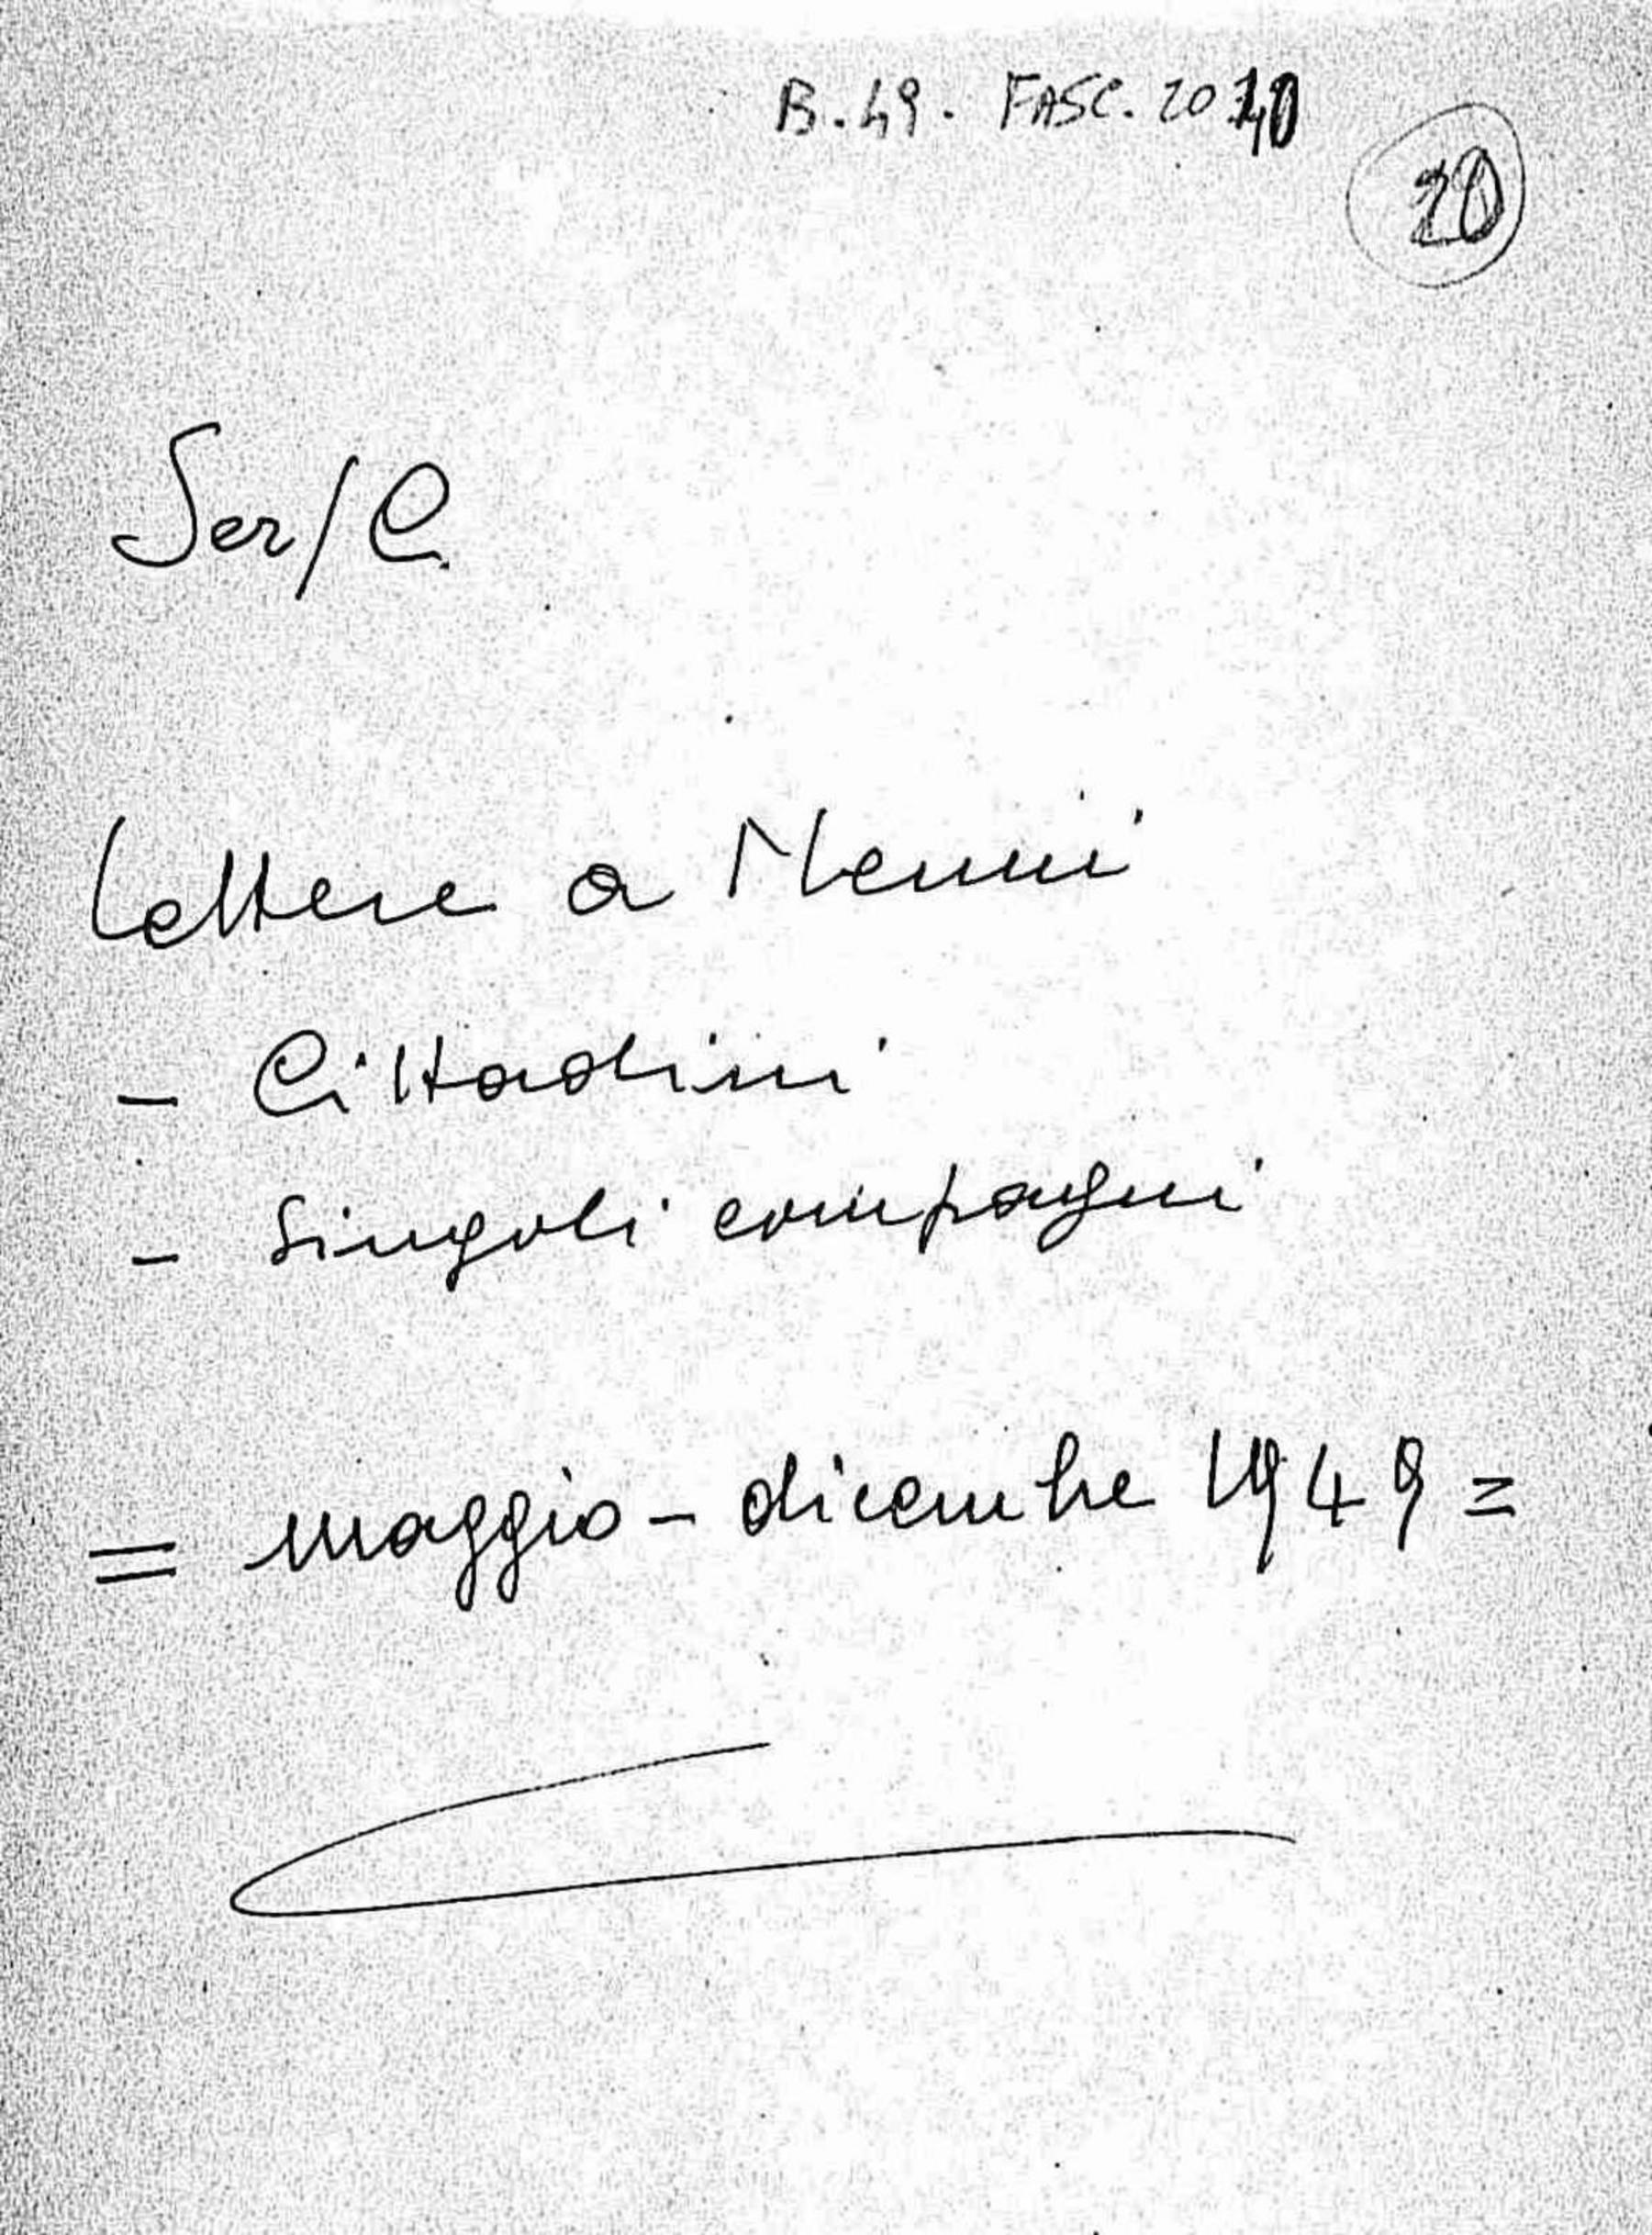 B. 49. FASC. 2040
20
Ser/C.
Lettere a Nenni
- Cittadini
- Singoli compagni
= maggio - dicembre 1949 =